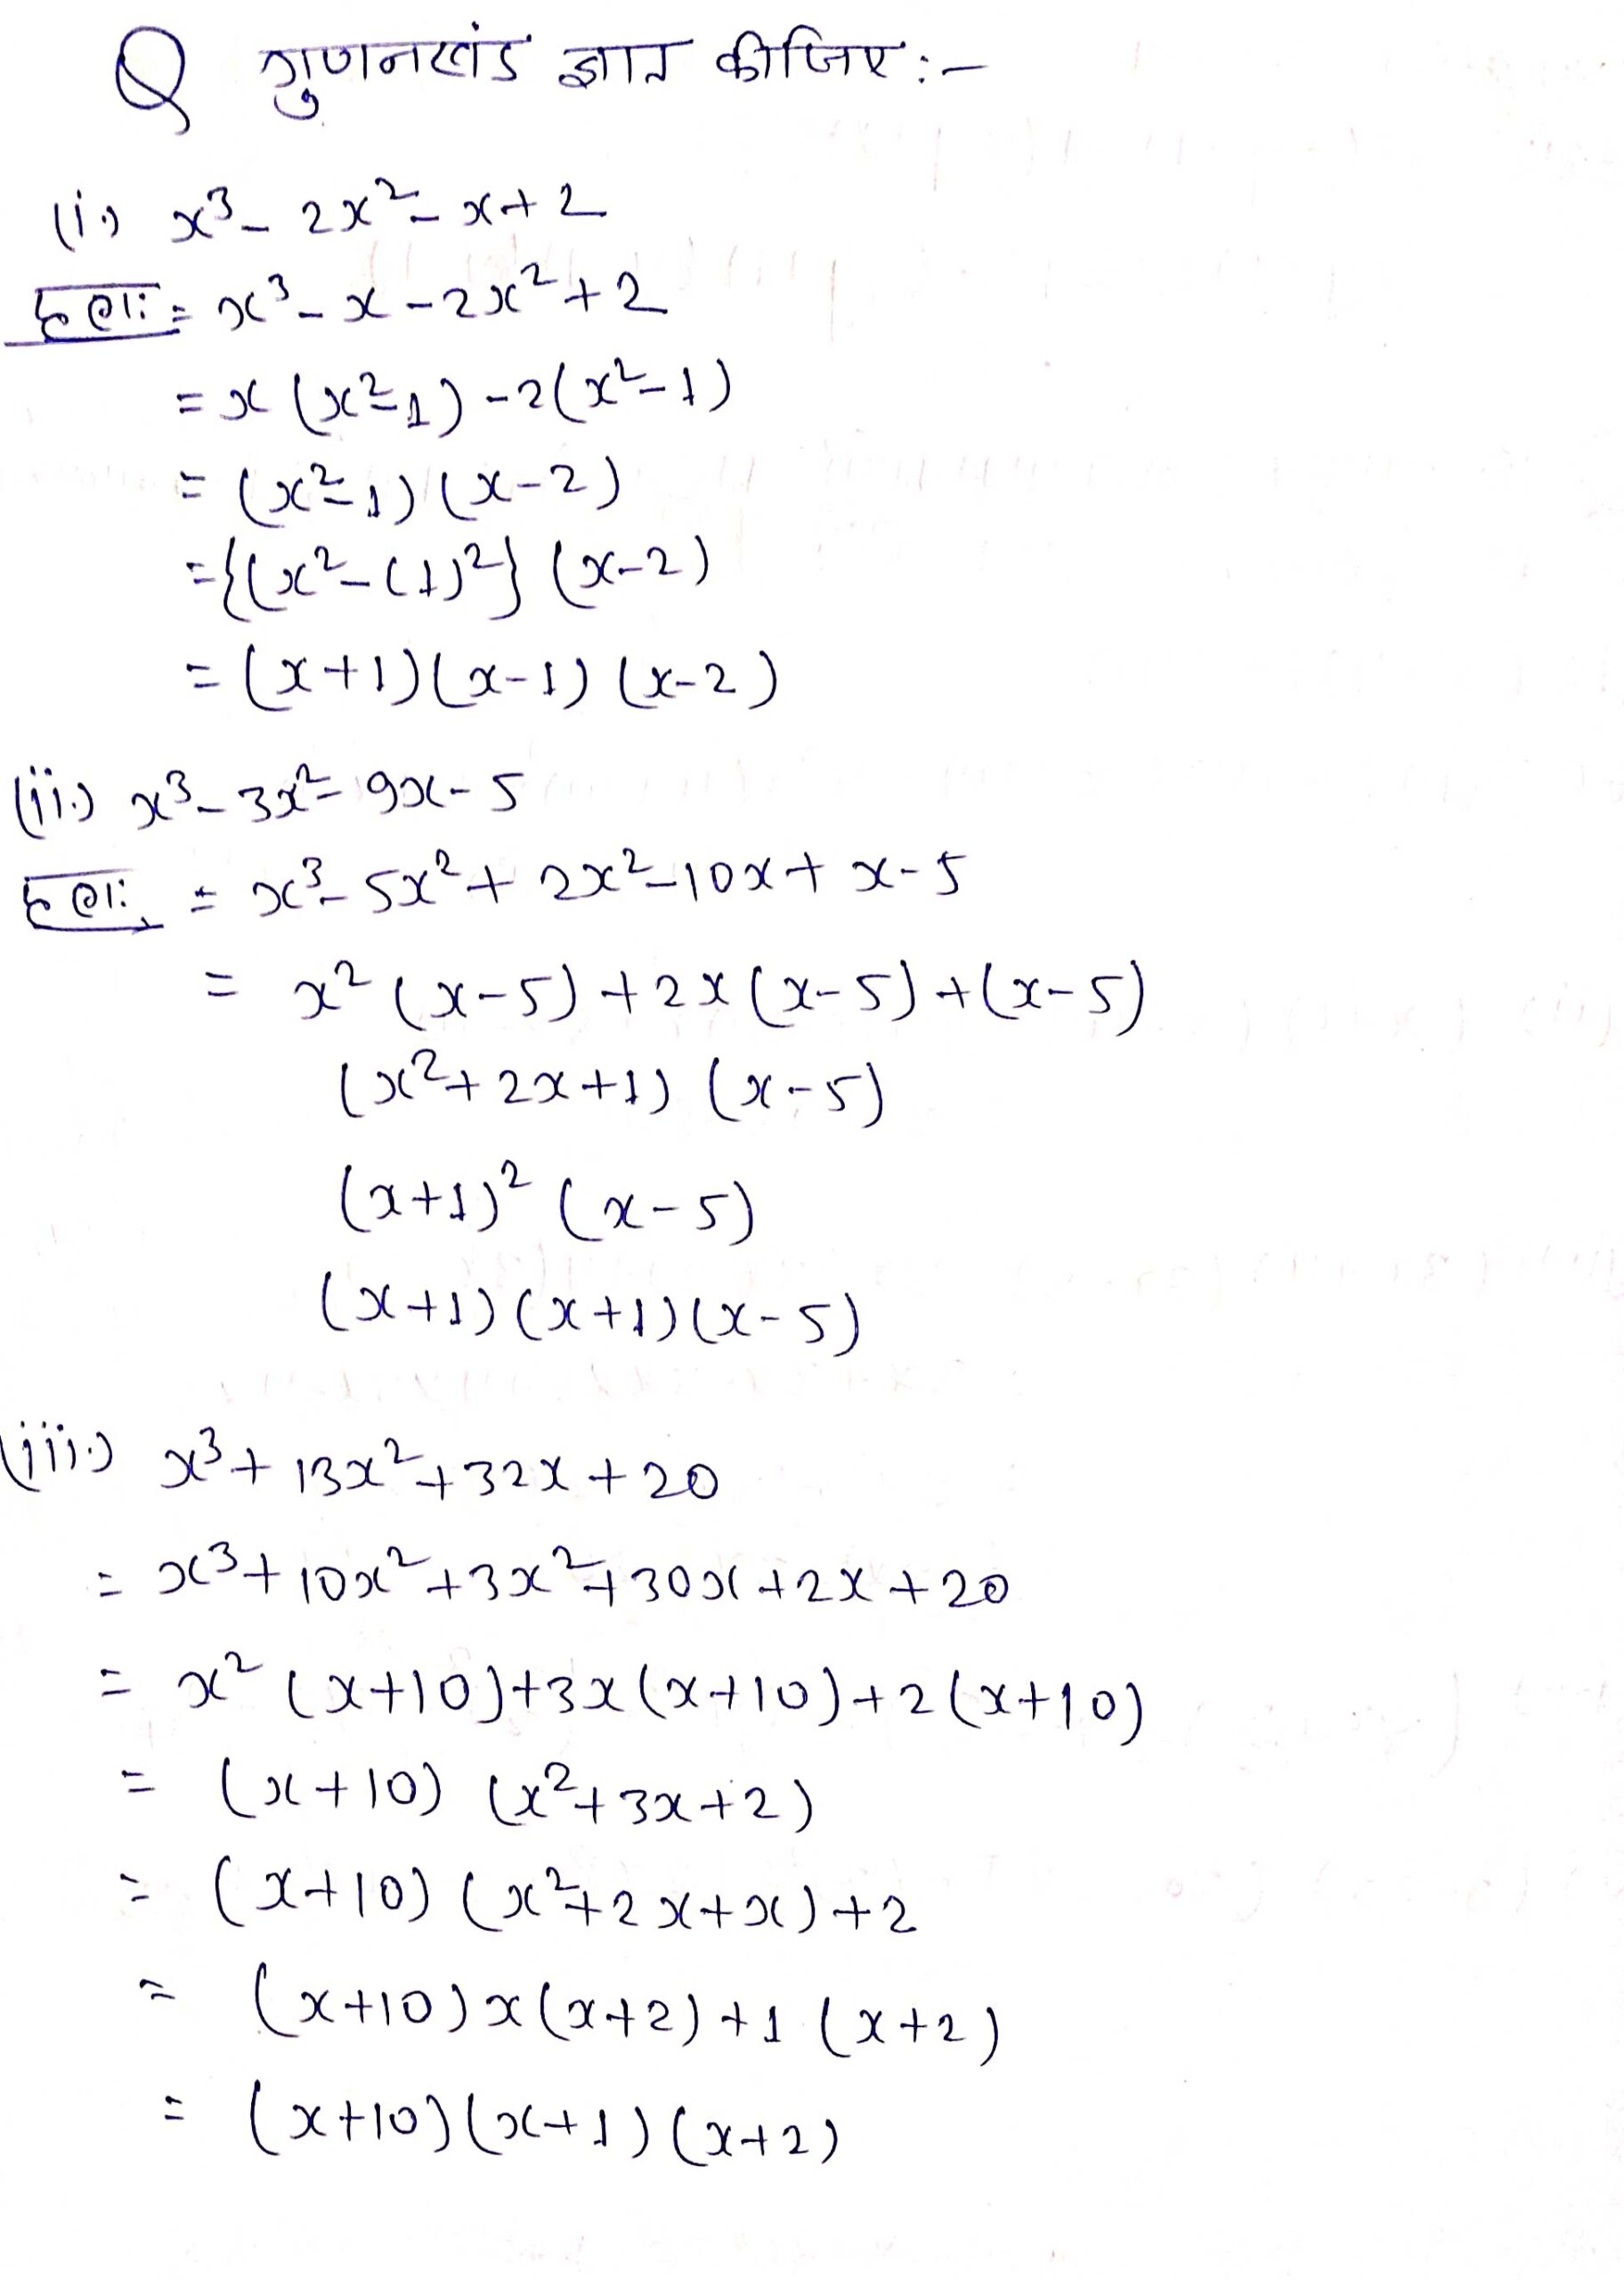 Q गुणनखंड ज्ञात कीजिए :-
(i.) x³ - 2x² - x + 2
हल: = x³ - x - 2x² + 2
= x (x² - 1) - 2(x² - 1)
= (x² - 1) (x - 2)
= {(x² - (1)²} (x - 2)
= (x + 1) (x - 1) (x - 2)
(ii.) x³ - 3x² - 9x - 5
हल: = x³ - 5x² + 2x² - 10x + x - 5
= x² (x - 5) + 2x (x - 5) + (x - 5)
(x² + 2x + 1) (x - 5)
(x + 1)² (x - 5)
(x + 1) (x + 1) (x - 5)
(iii.) x³ + 13x² + 32x + 20
= x³ + 10x² + 3x² + 30x + 2x + 20
= x² (x + 10) + 3x (x + 10) + 2 (x + 10)
= (x + 10) (x² + 3x + 2)
= (x + 10) (x² + 2x + x) + 2
= (x + 10) x (x + 2) + 1 (x + 2)
= (x + 10) (x + 1) (x + 2)